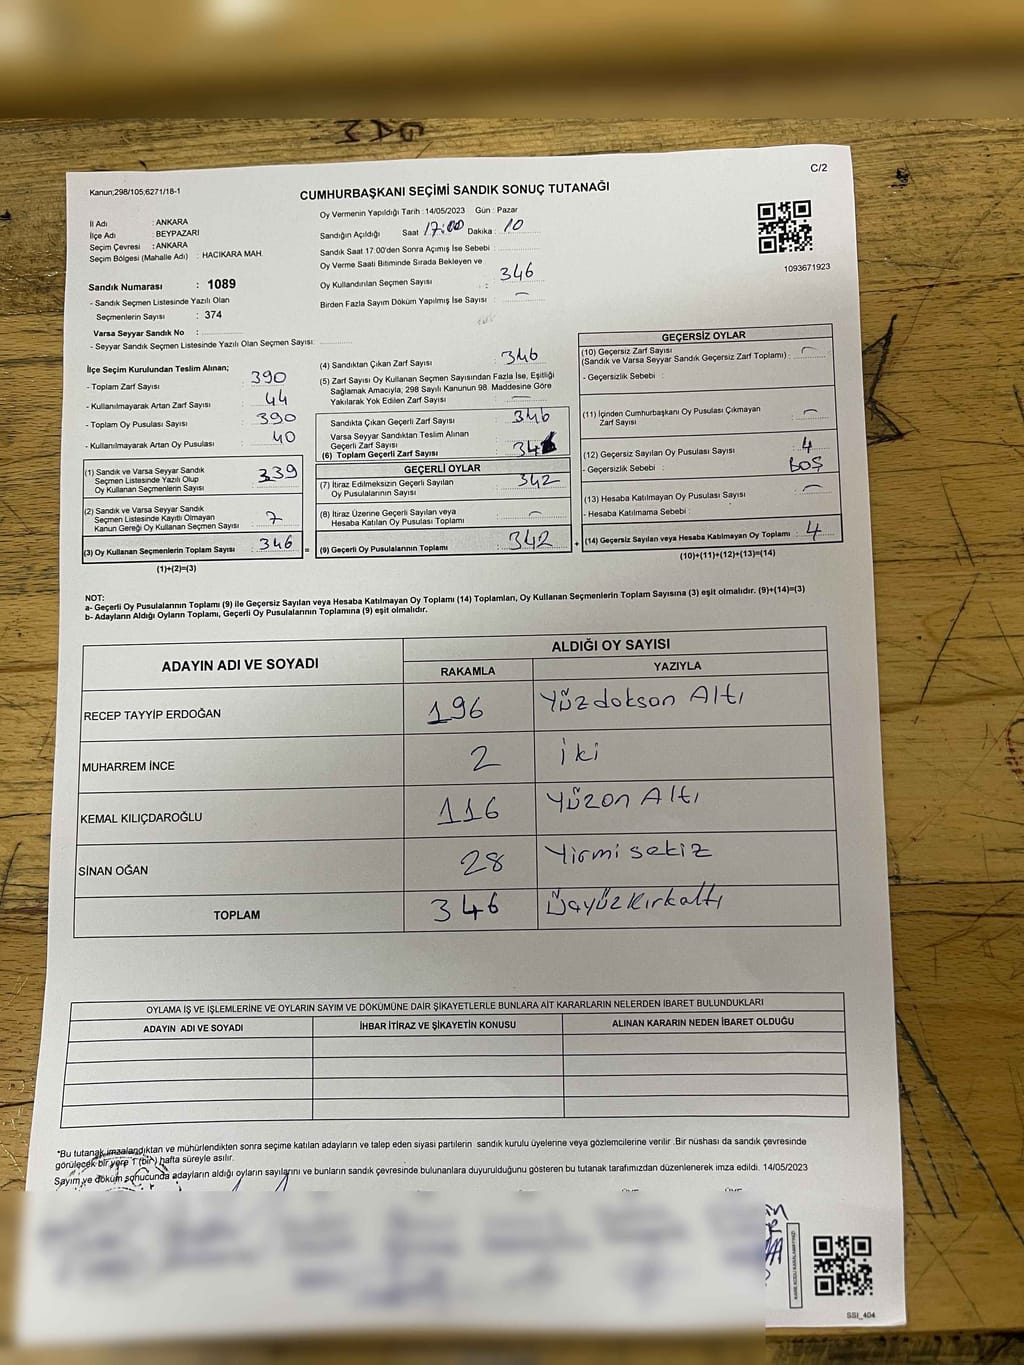 C/2
Kanun;298/105;6271/18-1
CUMHURBAŞKANI SEÇİMİ SANDIK SONUÇ TUTANAĞI
İl Adı : ANKARA
İlçe Adı : BEYPAZARI
Seçim Çevresi : ANKARA
Seçim Bölgesi (Mahalle Adı) : HACIKARA MAH.
Sandık Numarası : 1089
- Sandık Seçmen Listesinde Yazılı Olan
Seçmenlerin Sayısı : 374
Varsa Seyyar Sandık No :
- Seyyar Sandık Seçmen Listesinde Yazılı Olan Seçmen Sayısı:
Oy Vermenin Yapıldığı Tarih : 14/05/2023 Gün : Pazar
Sandığın Açıldığı Saat 17:00 Dakika : 10
Sandık Saat 17:00'den Sonra Açımış İse Sebebi :
Oy Verme Saati Bitiminde Sırada Bekleyen ve
Oy Kullandırılan Seçmen Sayısı : 346
Birden Fazla Sayım Döküm Yapılmış İse Sayısı : —
1093671923
İlçe Seçim Kurulundan Teslim Alınan;
- Toplam Zarf Sayısı : 390
- Kullanılmayarak Artan Zarf Sayısı : 44
- Toplam Oy Pusulası Sayısı : 390
- Kullanılmayarak Artan Oy Pusulası : 40
(1) Sandık ve Varsa Seyyar Sandık
Seçmen Listesinde Yazılı Olup
Oy Kullanan Seçmenlerin Sayısı : 339
(2) Sandık ve Varsa Seyyar Sandık
Seçmen Listesinde Kayıtlı Olmayan
Kanun Gereği Oy Kullanan Seçmen Sayısı : 7
(3) Oy Kullanan Seçmenlerin Toplam Sayısı : 346
(1)+(2)=(3)
(4) Sandıktan Çıkan Zarf Sayısı : 346
(5) Zarf Sayısı Oy Kullanan Seçmen Sayısından Fazla İse, Eşitliği
Sağlamak Amacıyla, 298 Sayılı Kanunun 98. Maddesine Göre
Yakılarak Yok Edilen Zarf Sayısı : —
Sandıkta Çıkan Geçerli Zarf Sayısı : 346
Varsa Seyyar Sandıktan Teslim Alınan
Geçerli Zarf Sayısı
(6) Toplam Geçerli Zarf Sayısı :
GEÇERLİ OYLAR
(7) İtiraz Edilmeksizin Geçerli Sayılan
Oy Pusulalarının Sayısı : 342
(8) İtiraz Üzerine Geçerli Sayılan veya
Hesaba Katılan Oy Pusulası Toplamı : —
= (9) Geçerli Oy Pusulalarının Toplamı : 342 +
GEÇERSİZ OYLAR
(10) Geçersiz Zarf Sayısı
(Sandık ve Varsa Seyyar Sandık Geçersiz Zarf Toplamı) : —
- Geçersizlik Sebebi :
(11) İçinden Cumhurbaşkanı Oy Pusulası Çıkmayan
Zarf Sayısı : —
(12) Geçersiz Sayılan Oy Pusulası Sayısı : 4
- Geçersizlik Sebebi : BOŞ
(13) Hesaba Katılmayan Oy Pusulası Sayısı : —
- Hesaba Katılmama Sebebi :
(14) Geçersiz Sayılan veya Hesaba Katılmayan Oy Toplamı : 4
(10)+(11)+(12)+(13)=(14)
NOT:
a- Geçerli Oy Pusulalarının Toplamı (9) ile Geçersiz Sayılan veya Hesaba Katılmayan Oy Toplamı (14) Toplamları, Oy Kullanan Seçmenlerin Toplam Sayısına (3) eşit olmalıdır. (9)+(14)=(3)
b- Adayların Aldığı Oyların Toplamı, Geçerli Oy Pusulalarının Toplamına (9) eşit olmalıdır.
ADAYIN ADI VE SOYADI
ALDIĞI OY SAYISI
RAKAMLA YAZIYLA
RECEP TAYYİP ERDOĞAN 196 Yüzdoksan Altı
MUHARREM İNCE 2 iki
KEMAL KILIÇDAROĞLU 116 Yüzon Altı
SİNAN OĞAN 28 Yirmi sekiz
TOPLAM 346 Üçyüzkırkaltı
OYLAMA İŞ VE İŞLEMLERİNE VE OYLARIN SAYIM VE DÖKÜMÜNE DAİR ŞİKAYETLERLE BUNLARA AİT KARARLARIN NELERDEN İBARET BULUNDUKLARI
ADAYIN ADI VE SOYADI İHBAR İTİRAZ VE ŞİKAYETİN KONUSU ALINAN KARARIN NEDEN İBARET OLDUĞU
*Bu tutanak imzalandıktan ve mühürlendikten sonra seçime katılan adayların ve talep eden siyasi partilerin sandık kurulu üyelerine veya gözlemcilerine verilir .Bir nüshası da sandık çevresinde
görülecek bir yere 1 (bir) hafta süreyle asılır.
Sayım ve döküm sonucunda adayların aldığı oyların sayılarını ve bunların sandık çevresinde bulunanlara duyurulduğunu gösteren bu tutanak tarafımızdan düzenlenerek imza edildi. 14/05/2023
SSI_404